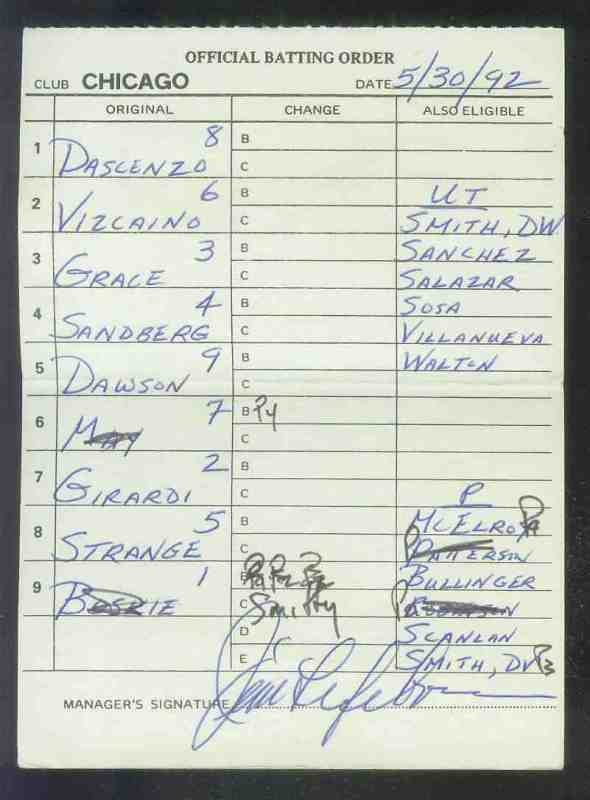 OFFICIAL BATTING ORDER
CLUB CHICAGO DATE 5/30/92
ORIGINAL CHANGE ALSO ELIGIBLE
1 DASCENZO 8 B
C
2 VIZCAINO 6 B UT
C SMITH, DW
3 GRACE 3 B SANCHEZ
C SALAZAR
4 SANDBERG 4 B SOSA
C VILLANUEVA
5 DAWSON 9 B WALTON
C
6 MAY 7 B P4
C
7 GIRARDI 2 B
C P
8 STRANGE 5 B MCELROY
C PATTERSON
9 BOSKIE 1 B BULLINGER
C Smitty ROBINSON
D SCANLAN
E SMITH, DV P3
MANAGER'S SIGNATURE Jim Lefebvre